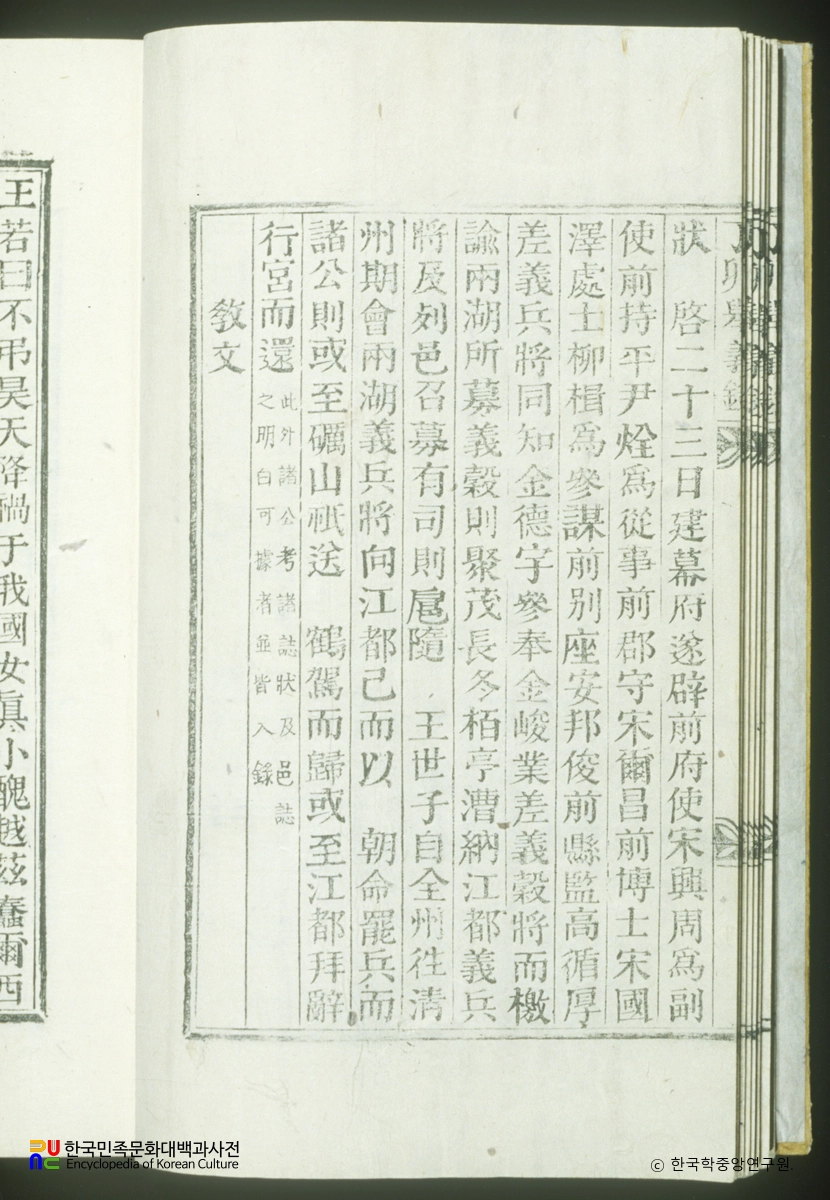 狀 啓二十三日建幕府遂辟前府使宋興周爲副
使前持平尹烇爲從事前郡守宋爾昌前博士宋國
澤處士柳楫爲參謀前別座安邦俊前縣監高循厚
差義兵將同知金德宇參奉金峻業差義穀將而檄
諭兩湖所募義穀則聚茂長冬栢亭漕納江都義兵
將及列邑召募有司則扈隨 王世子自全州往淸
州期會兩湖義兵將向江都已而以 朝命罷兵而
諸公則或至礪山祇送 鶴駕而歸或至江都拜辭
行宮而還此外諸公考諸誌狀及邑誌
之明白可據者並皆入錄
敎文
王若曰不弔昊天降禍于我國女眞小醜越玆蠢爾西
한국민족문화대백과사전
Encyclopedia of Korean Culture
ⓒ 한국학중앙연구원